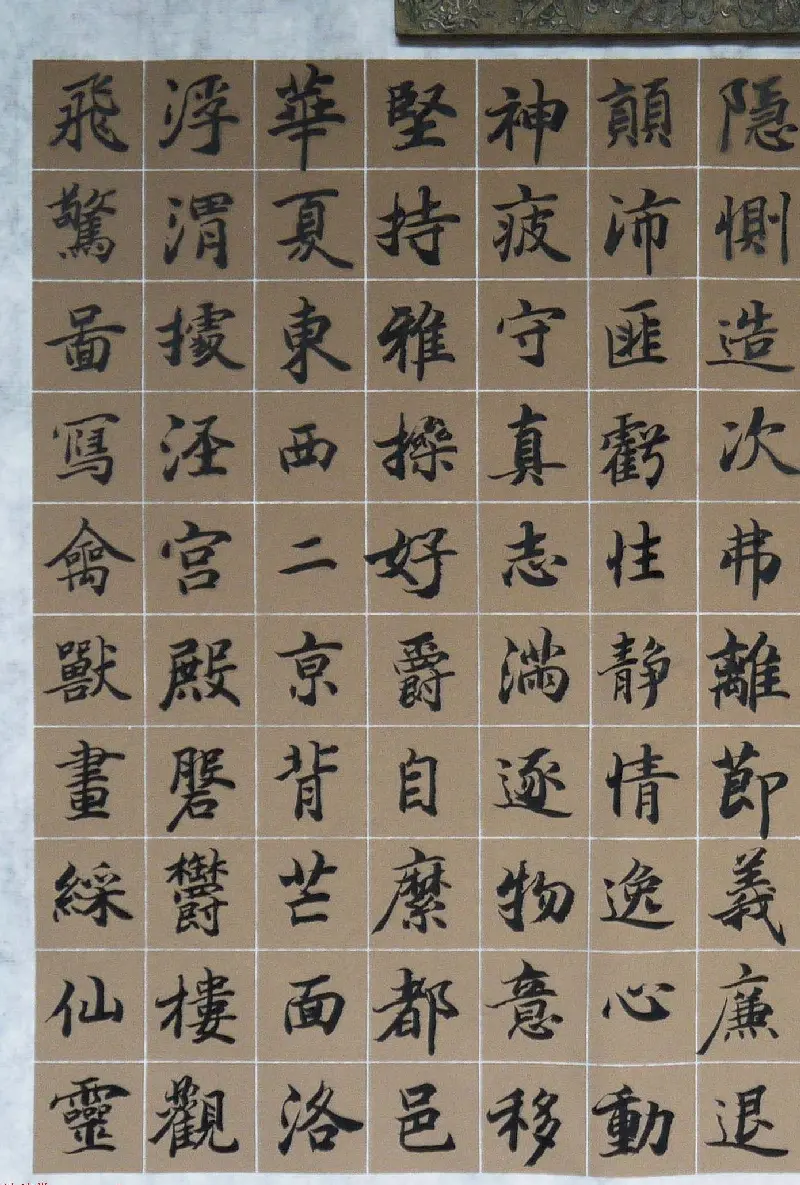 隱惻造次弗離節義廉退
顛沛匪虧性静情逸心動
神疲守真志滿逐物意移
堅持雅操好爵自縻都邑
華夏東西二京背芒面洛
浮渭據涇宮殿磐鬱樓觀
飛驚啚寫禽獸畫綵仙靈